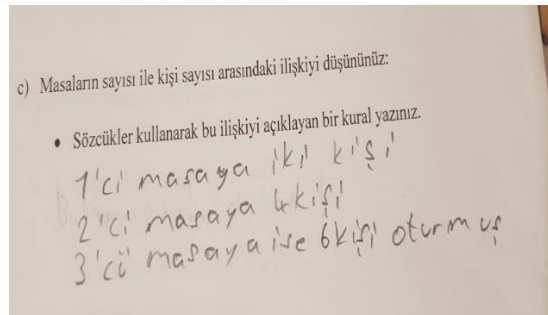 c) Masaların sayısı ile kişi sayısı arasındaki ilişkiyi düşününüz:
• Sözcükler kullanarak bu ilişkiyi açıklayan bir kural yazınız.
1'ci masaya iki kişi
2'ci masaya 4kişi
3'cü masaya ise 6kişi oturmuş